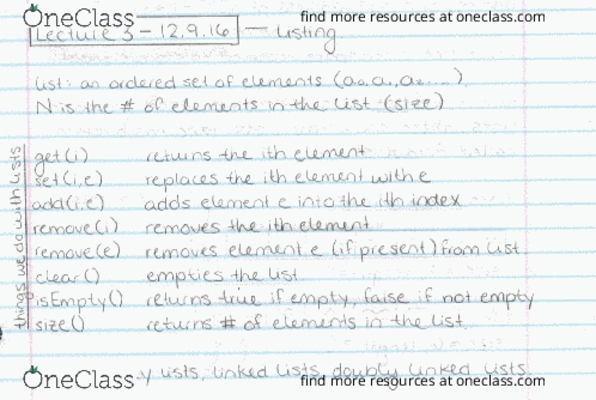 OneClass find more resources at oneclass.com
Lecture 3 - 12.9.16 — Listing
List: an ordered set of elements (a0, a1, a2, ...)
N is the # of elements in the list (size)
things we do with lists
get(i) returns the ith element
set(i,e) replaces the ith element with e
add(i,e) adds element e into the ith index
remove(i) removes the ith element
remove(e) removes element e (if present) from list
clear() empties the list
isEmpty() returns true if empty, false if not empty
size() returns # of elements in the list
y lists, linked lists, doubly linked lists
OneClass find more resources at oneclass.com